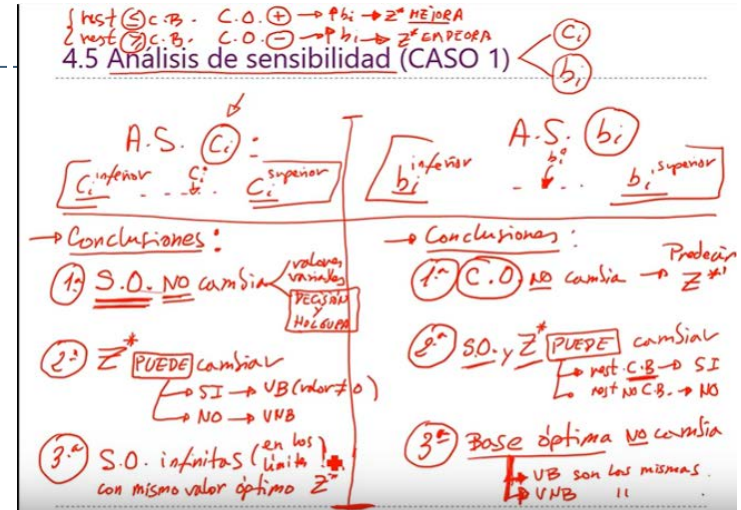 { rest (≤) C.B. C.O. (+) → ↑bi → Z* MEJORA
{ rest (≥) C.B. C.O. (-) → ↑bi → Z* EMPEORA
4.5 Análisis de sensibilidad (CASO 1)
Ci
bi
A.S. (Ci):
Ci inferior ... Ci ... Ci superior
→ Conclusiones:
1.ª S.O. NO cambia
valores variables
DECISIÓN
Y
HOLGURA
2.ª Z* PUEDE cambiar
→ SI → VB (valor ≠ 0)
→ NO → VNB
3.ª S.O. infinitas (en los límites)
con mismo valor óptimo Z*
A.S. (bi)
bi inferior ... bi ... bi superior
→ Conclusiones:
1.ª C.O. NO cambia → Predecir Z*'
2.ª S.O. y Z* PUEDE cambiar
→ rest. C.B → SI
→ rest NO C.B. → NO
3.ª Base óptima NO cambia
→ VB son las mismas.
→ VNB "